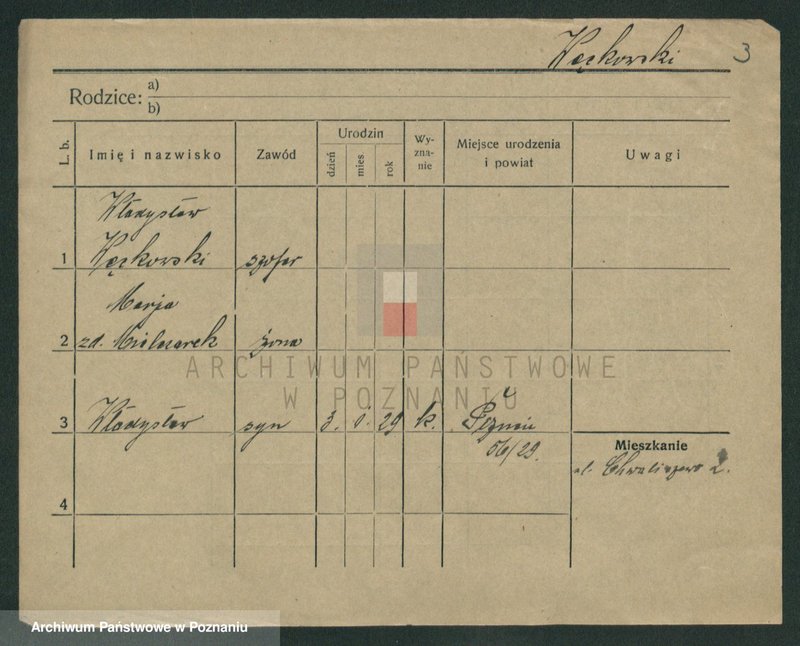 Węckowski 3
Rodzice: a)
b)
L. b. Imię i nazwisko Zawód Urodzin dzień mies rok Wy-zna-nie Miejsce urodzenia i powiat Uwagi
Władysław
1 Węckowski szofer
Marja
2 zd. Mielcarek żona
3 Władysław syn 3. 29 k.
56/29. Mieszkanie
ul. Chwaliszewo 2.
4
ARCHIWUM PAŃSTWOWE
W POZNANIU
Archiwum Państwowe w Poznaniu